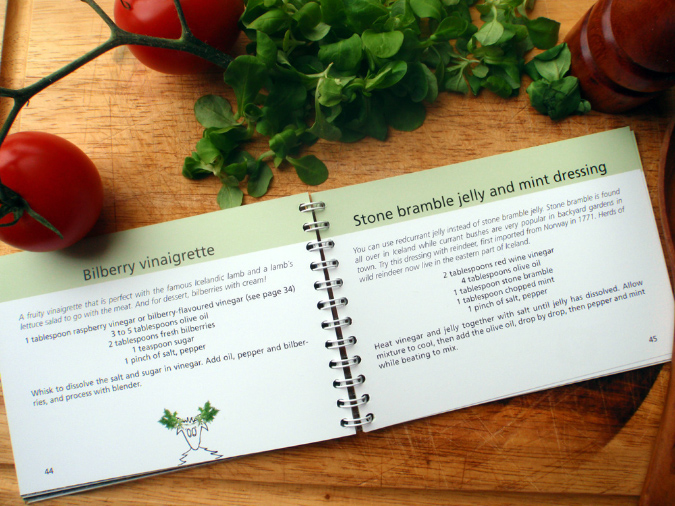 Bilberry vinaigrette
A fruity vinaigrette that is perfect with the famous Icelandic lamb and a lamb's
lettuce salad to go with the meat. And for dessert, bilberries with cream!
1 tablespoon raspberry vinegar or bilberry-flavoured vinegar (see page 34)
3 to 5 tablespoons olive oil
2 tablespoons fresh bilberries
1 teaspoon sugar
1 pinch of salt, pepper
Whisk to dissolve the salt and sugar in vinegar. Add oil, pepper and bilber-
ries, and process with blender.
44
Stone bramble jelly and mint dressing
You can use redcurrant jelly instead of stone bramble jelly. Stone bramble is found
all over in Iceland while currant bushes are very popular in backyard gardens in
town. Try this dressing with reindeer, first imported from Norway in 1771. Herds of
wild reindeer now live in the eastern part of Iceland.
2 tablespoons red wine vinegar
4 tablespoons olive oil
1 tablespoon stone bramble
1 tablespoon chopped mint
1 pinch of salt, pepper
Heat vinegar and jelly together with salt until jelly has dissolved. Allow
mixture to cool, then add the olive oil, drop by drop, then pepper and mint
while beating to mix.
45